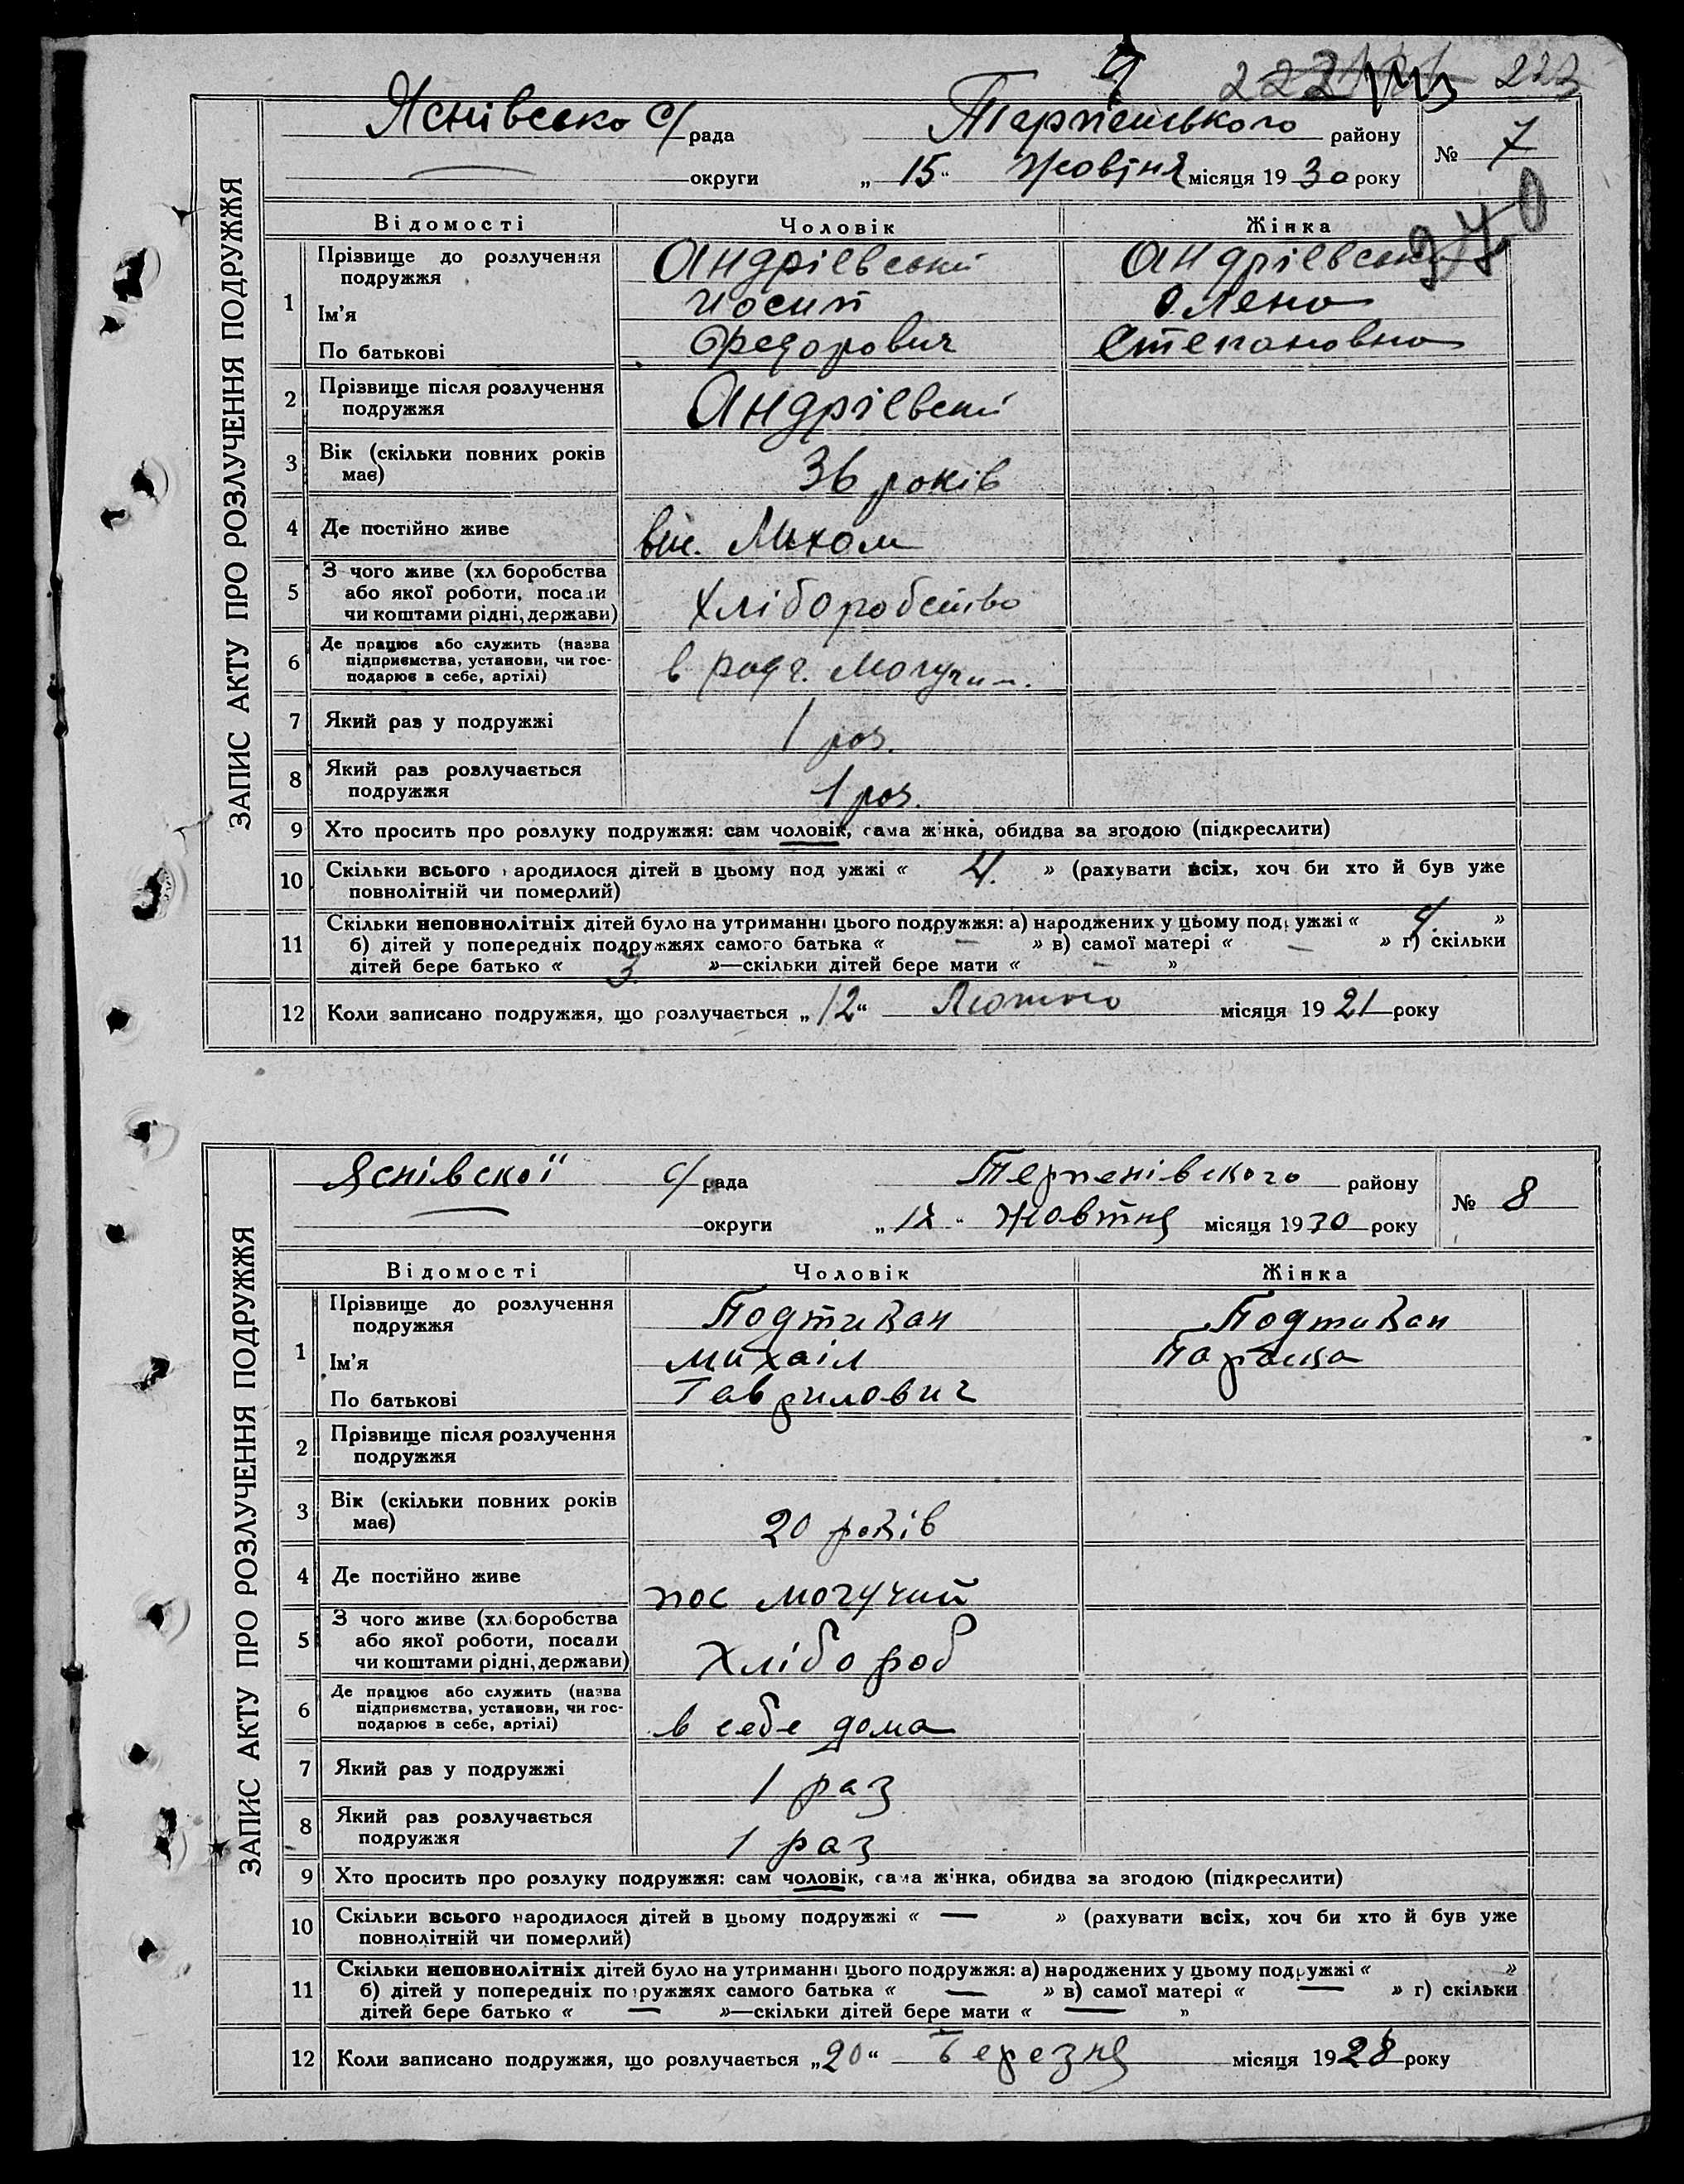 223
Яснівсько с/рада Терпеньського району № 7
округи „15“ Жовтня місяця 1930 року
370
ЗАПИС АКТУ ПРО РОЗЛУЧЕННЯ ПОДРУЖЖЯ
Відомості Чоловік Жінка
1 Прізвище до розлучення подружжя Андріевський Андріевська
Ім'я Иосип Олена
По батькові Федорович Степановна
2 Прізвище після розлучення подружжя Андріевский
3 Вік (скільки повних років має) 36 років
4 Де постійно живе
5 З чого живе (хліборобства або якої роботи, посади чи коштами рідні, держави) Хліборобство
6 Де працює або служить (назва підприємства, установи, чи господарює в себе, артілі) в
7 Який раз у подружжі 1 раз.
8 Який раз розлучається подружжя 1 раз.
9 Хто просить про розлуку подружжя: сам чоловік, сама жінка, обидва за згодою (підкреслити)
10 Скільки всього народилося дітей в цьому подружжі « 4. » (рахувати всіх, хоч би хто й був уже
повнолітній чи померлий)
11 Скільки неповнолітніх дітей було на утриманні цього подружжя: а) народжених у цьому подружжі « 4 »
б) дітей у попередніх подружжях самого батька « — » в) самої матері « — » г) скільки
дітей бере батько « 3. »—скільки дітей бере мати « — »
12 Коли записано подружжя, що розлучається „12“ Лютого місяця 1921 року
Яснівскоі с/рада Терпенівского району № 8
округи жовтня місяця 1930 року
ЗАПИС АКТУ ПРО РОЗЛУЧЕННЯ ПОДРУЖЖЯ
Відомості Чоловік Жінка
1 Прізвище до розлучення подружжя Подтикан Подтикан
Ім'я Михаіл Параска
По батькові Гаврилович
2 Прізвище після розлучення подружжя
3 Вік (скільки повних років має) 20 років
4 Де постійно живе пос Могучий
5 З чого живе (хліборобства або якої роботи, посади чи коштами рідні, держави) Хлібороб
6 Де працює або служить (назва підприємства, установи, чи господарює в себе, артілі) в себе дома
7 Який раз у подружжі 1 раз
8 Який раз розлучається подружжя 1 раз
9 Хто просить про розлуку подружжя: сам чоловік, сама жінка, обидва за згодою (підкреслити)
10 Скільки всього народилося дітей в цьому подружжі « — » (рахувати всіх, хоч би хто й був уже
повнолітній чи померлий)
11 Скільки неповнолітніх дітей було на утриманні цього подружжя: а) народжених у цьому подружжі « »
б) дітей у попередніх подружжях самого батька « — » в) самої матері « — » г) скільки
дітей бере батько « — »—скільки дітей бере мати « — »
12 Коли записано подружжя, що розлучається „20“ Березня місяця 1928 року